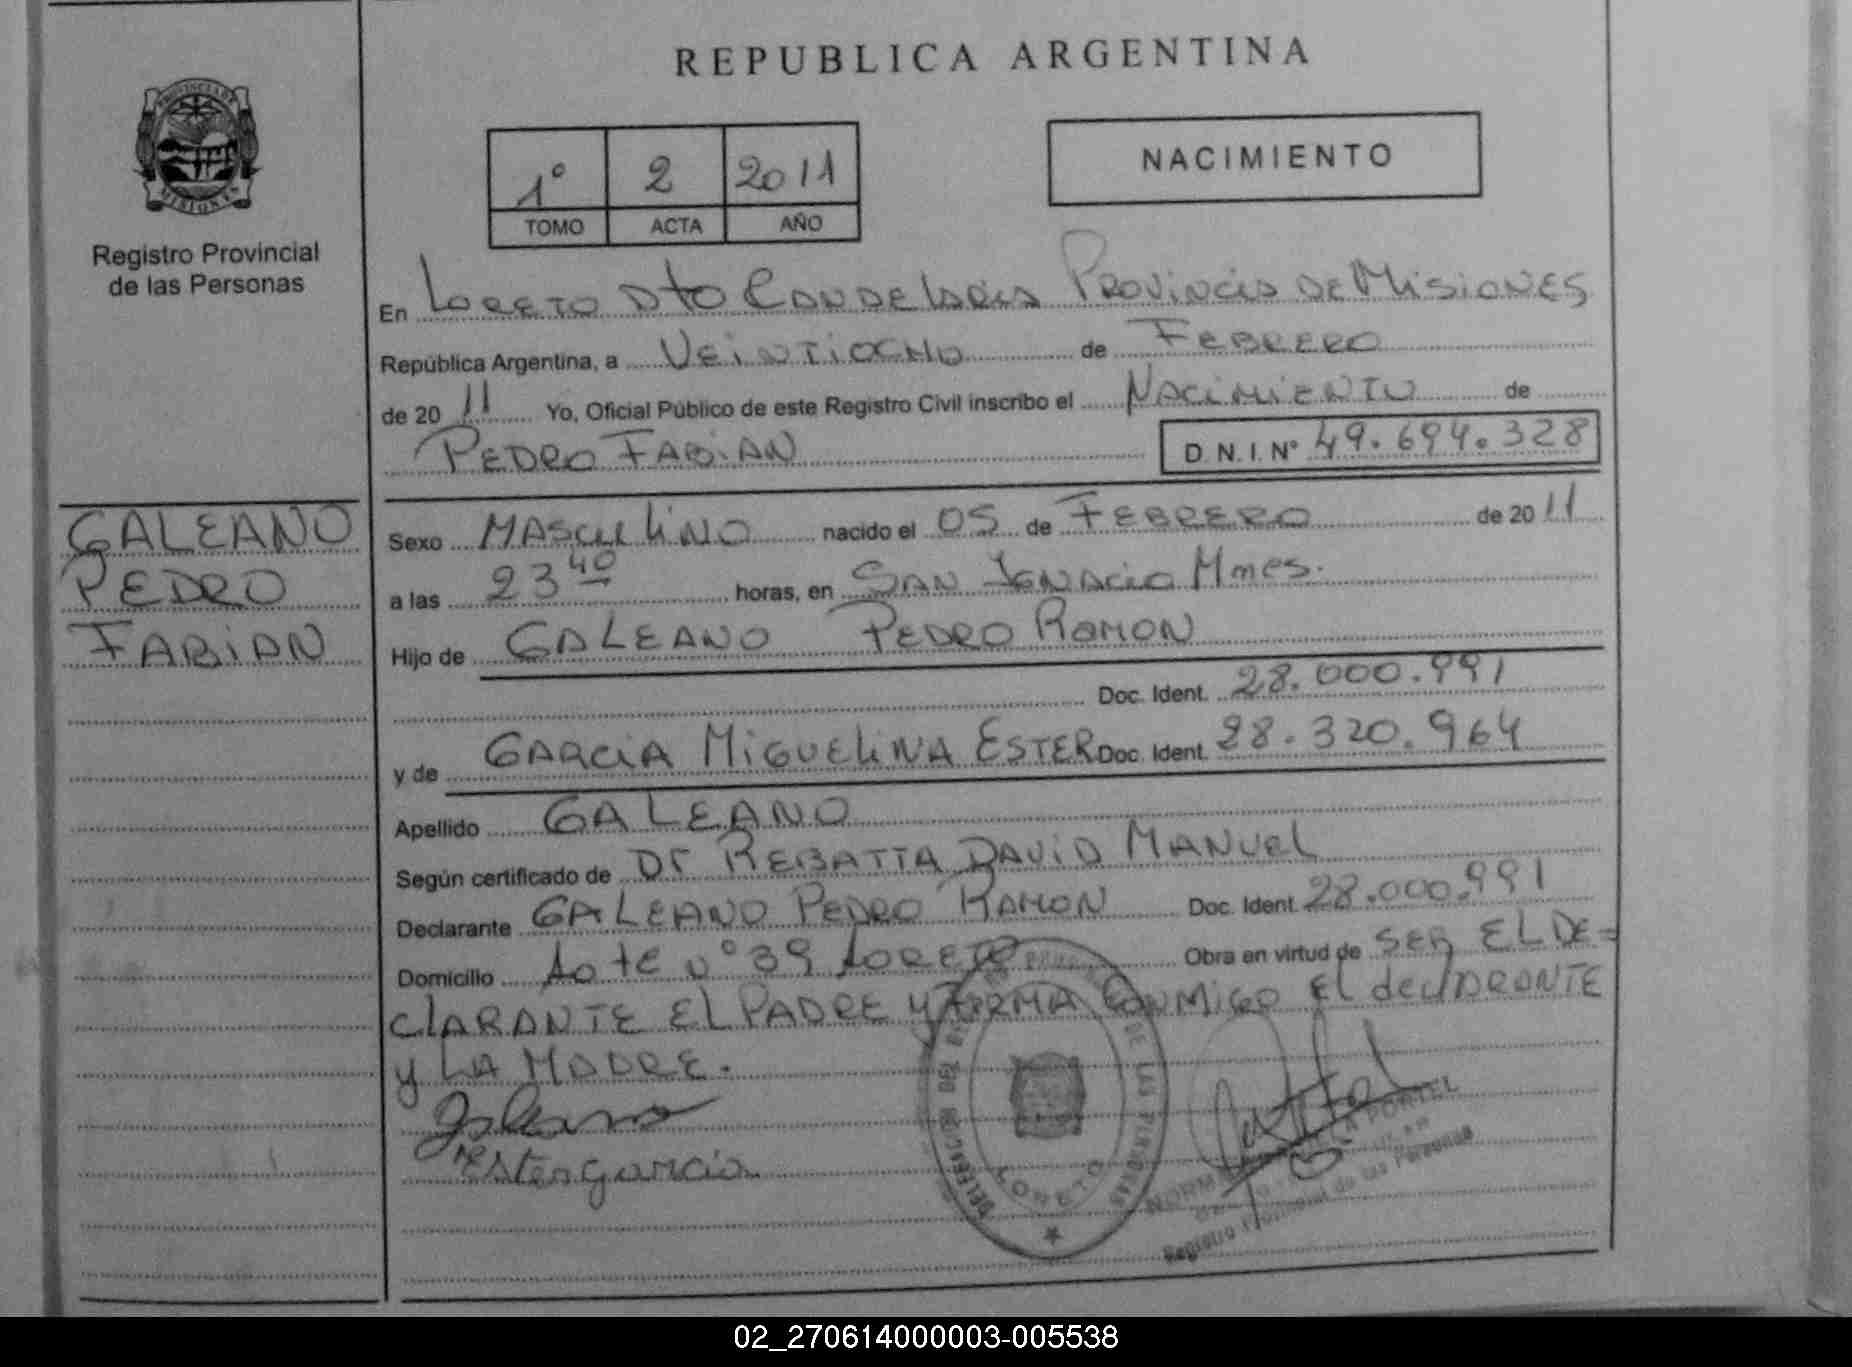 REPUBLICA ARGENTINA
PROVINCIA DE MISIONES
Registro Provincial
de las Personas
1° 2 2011
TOMO ACTA AÑO
NACIMIENTO
En LORETO Dto CANDELARIA PROVINCIA DE MISIONES
República Argentina, a VEINTIOCHO de FEBRERO
de 20 11 Yo, Oficial Público de este Registro Civil inscribo el NACIMIENTO de
PEDRO FABIAN D.N.I. N° 49.694.328
GALEANO
PEDRO
FABIAN
Sexo MASCULINO nacido el 05 de FEBRERO de 20 11
a las 23 40 horas, en SAN IGNACIO Mnes.
Hijo de GALEANO PEDRO RAMON
Doc. Ident. 28.000.991
y de GARCIA MIGUELINA ESTER Doc. Ident. 28.320.964
Apellido GALEANO
Según certificado de Dr REBATTA DAVID MANUEL
Declarante GALEANO PEDRO RAMON Doc. Ident. 28.000.991
Domicilio Lote n° 39 LORETO Obra en virtud de SER EL DE=
CLARANTE EL PADRE y FIRMA CONMIGO El declARANTE
y LA MADRE.
Galeano
Ester garcia
DE LAS PERSONAS
LORETO
PORTEL
Registro Provincial de las Personas
02_270614000003-005538